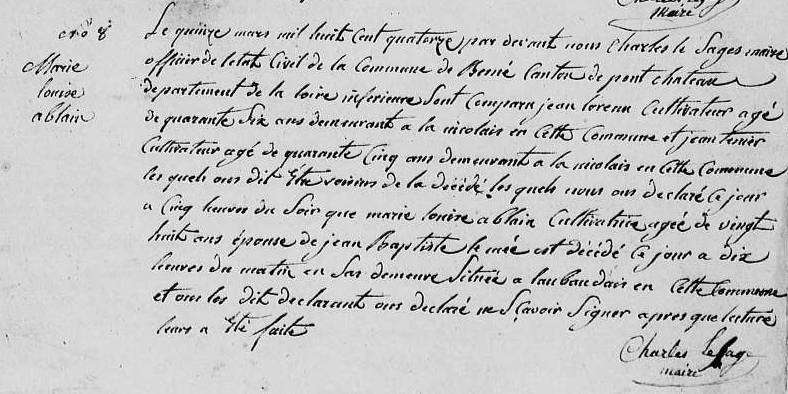 maire
nro 8
Marie
louise
ablain
Le quinze mars mil huit cent quatorze par devant nous Charles le Sages maire
officier de letat Civil de la Commune de Besné Canton de pont chateau
departement de la loire inferieure Sont Comparu jean Cultivateur agé
de quarante Six ans demeurant a la nicolais en Cette Commune et jean
Cultivateur agé de quarante Cinq ans demeurant a la nicolais en Cette Commune
les quels ons dit Être voisins de la décédé les quels nous ons declaré Ce jour
a Cinq heures du Soir que marie louise ablain Cultivatrice agée de vingt
huit ans épouse de jean Baptiste le mée est décédé Ce jour a dix
heures du matin en Sas demeure Située a laubaudais en Cette Commune
et ons les dit declarant ons declaré ne Sçavoir Signer apres que lecture
leurs a Été faite
Charles leSage
maire